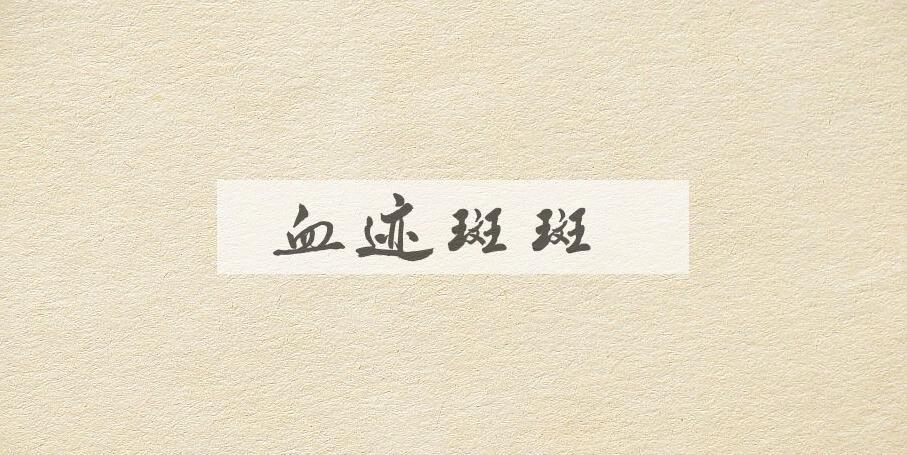 血迹斑斑